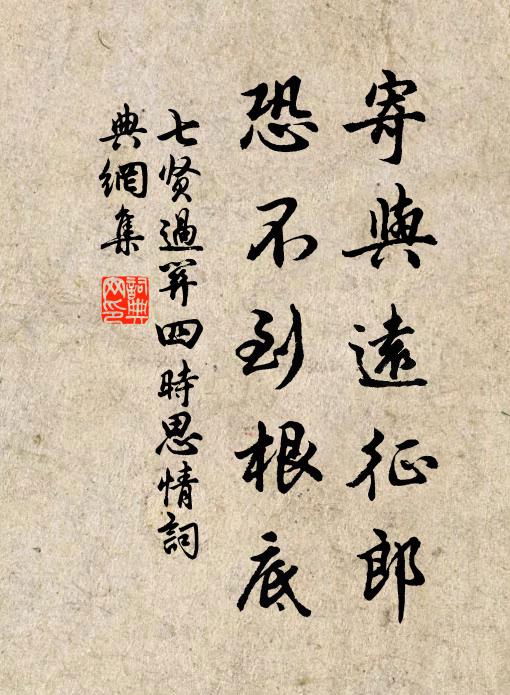 寄與遠征郎
恐不到根底
七贤過關四時思情詞
典網集
詞典網印